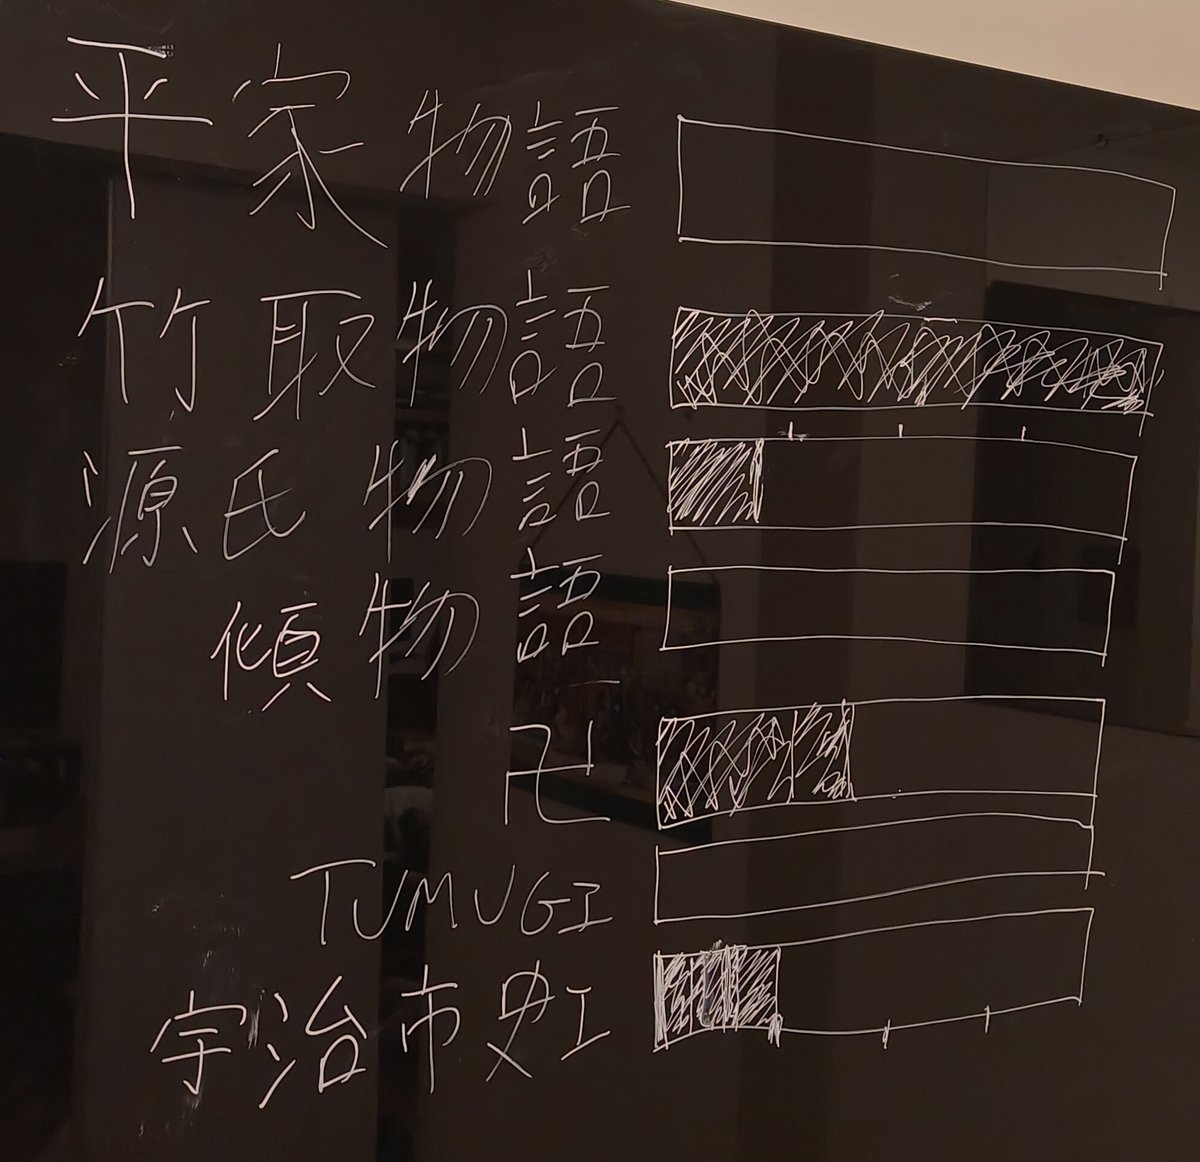 平家物語
竹取物語
源氏物語
傾物語
卍
TUMUGI
宇治市史I